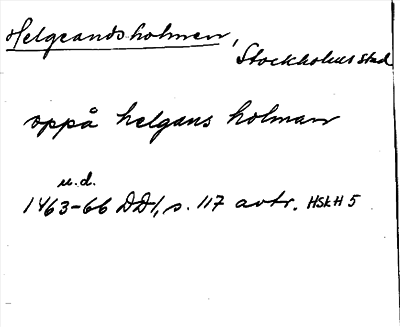 Helgeandsholmen, Stockholms stad
oppå helgans holman
u.d.
1463-66 DD1, s. 117 avtr. HSkH 5